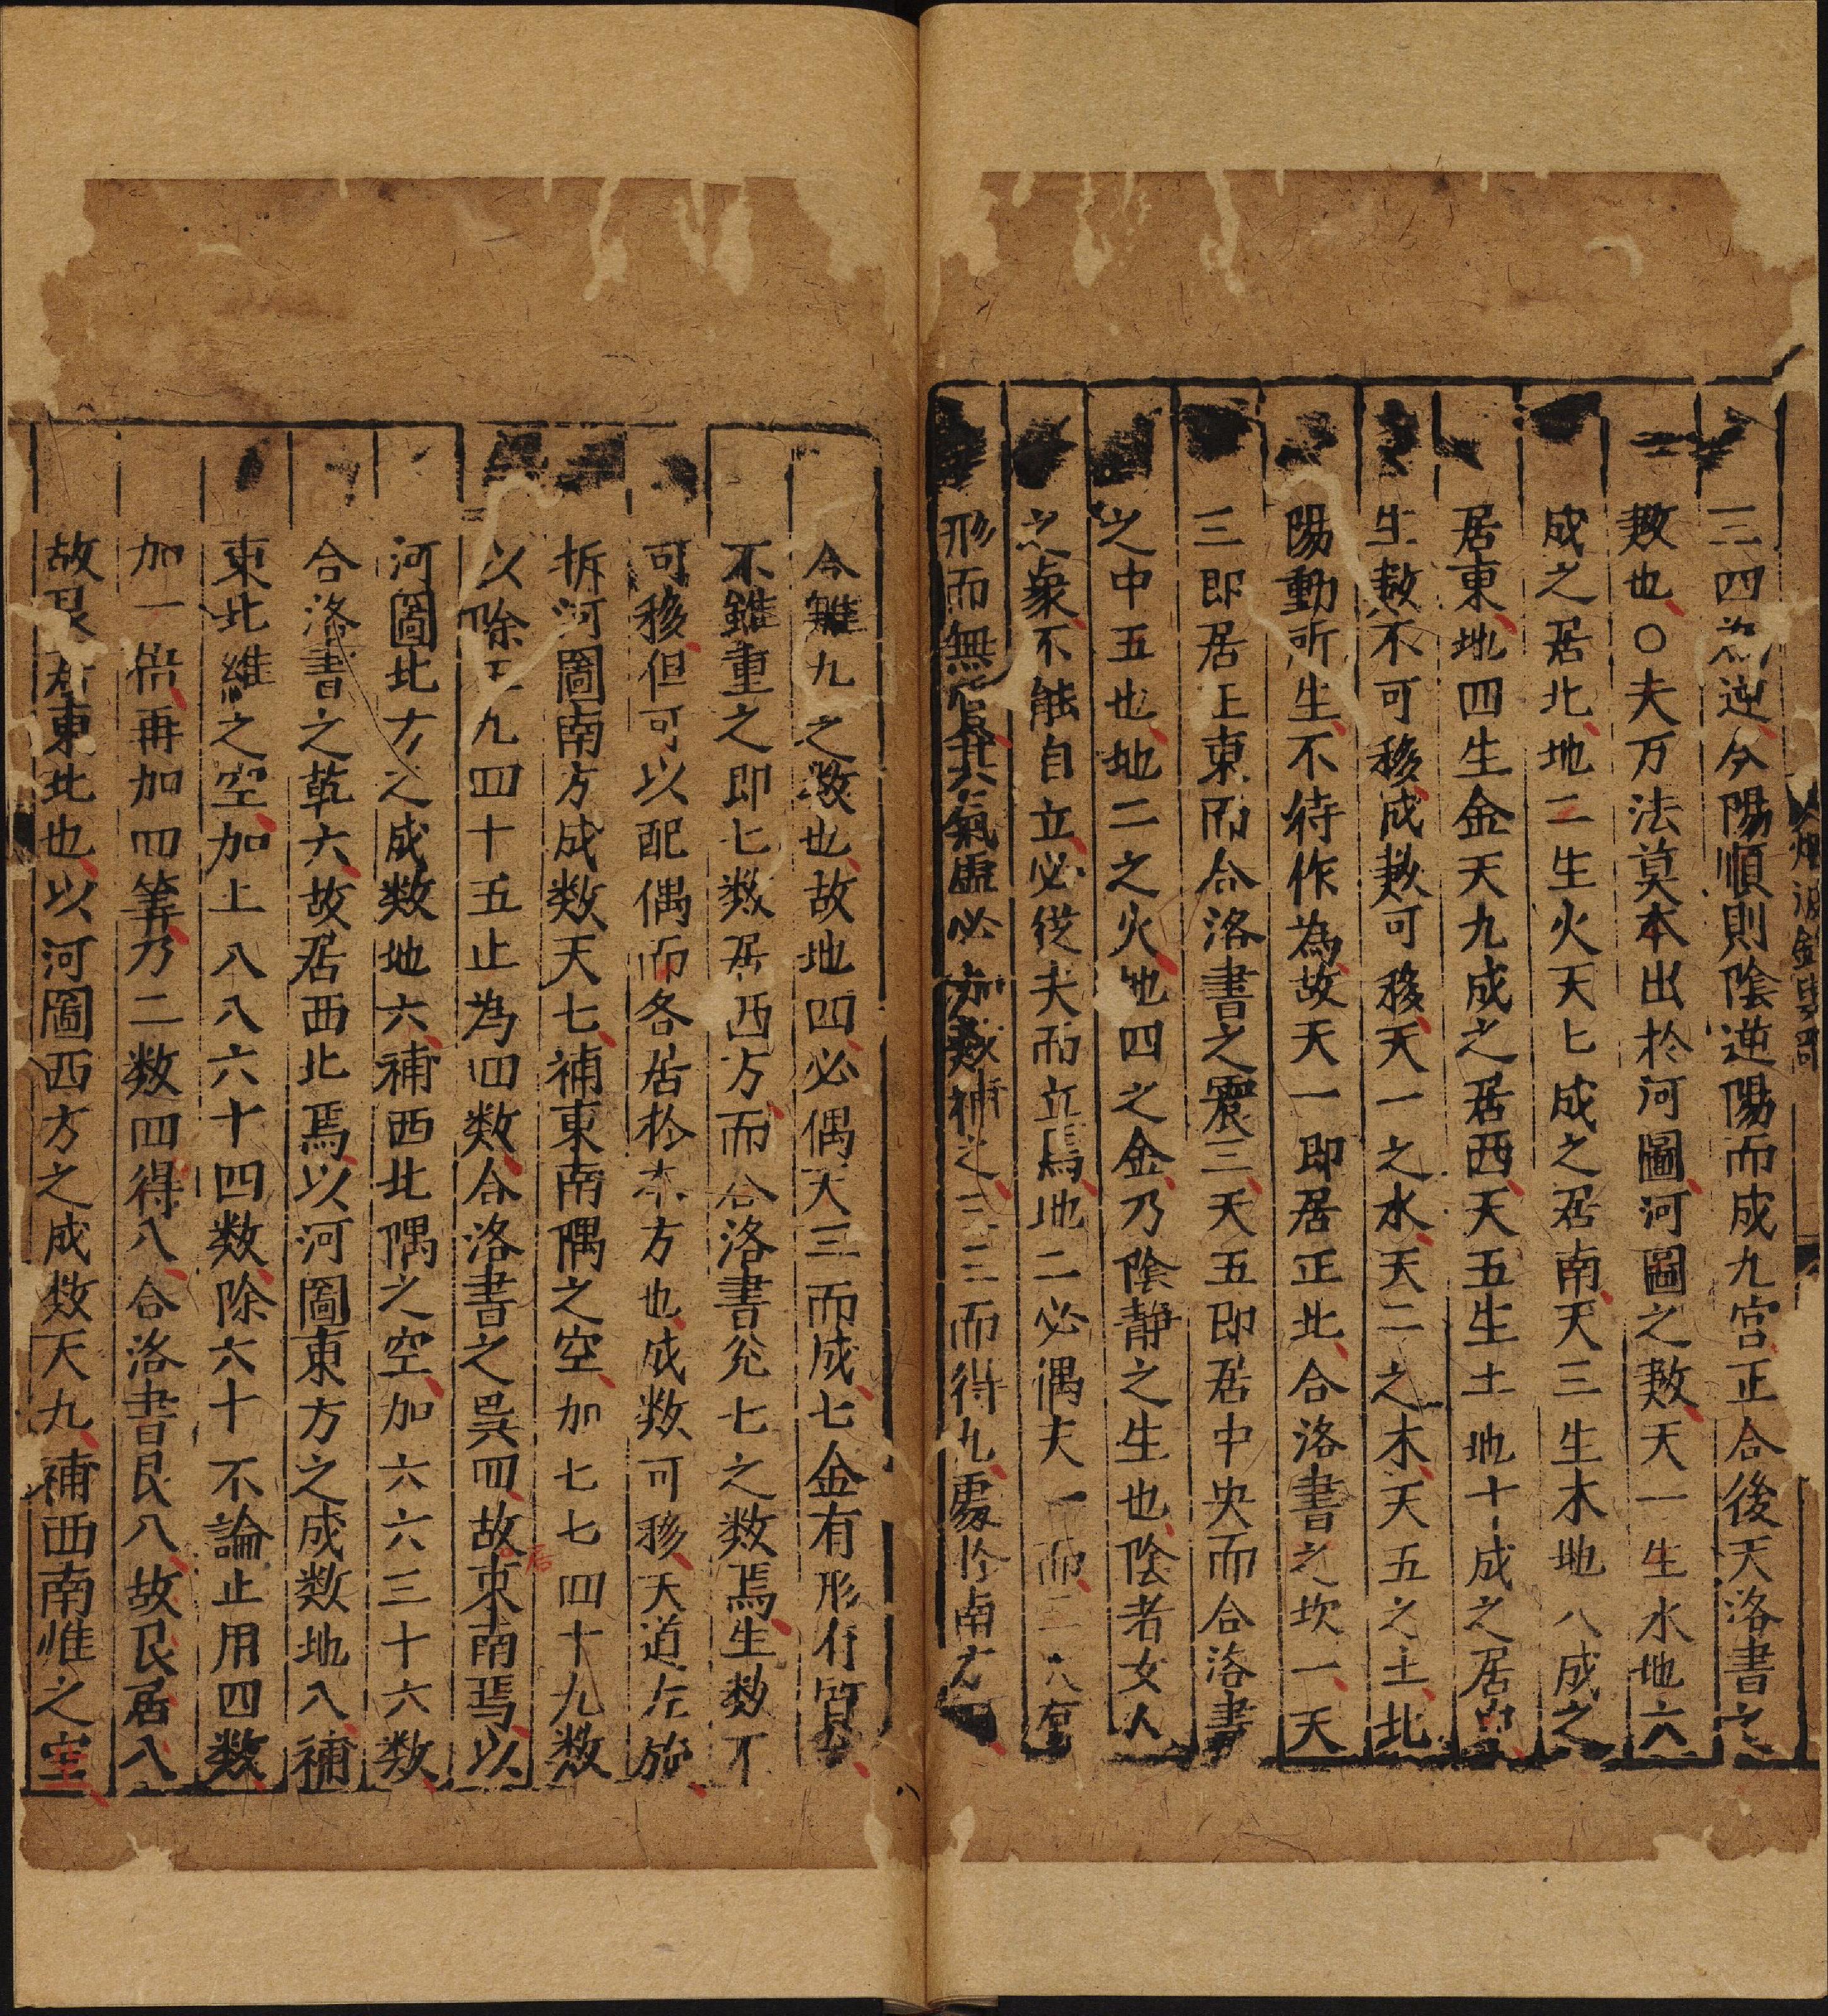 三四為逆今陽順則陰逆陽而成九宮正合後天洛書之
数也○夫万法莫本出於河圖河圖之数天一生水地六
成之居北地二生火天七成之居南天三生木地八成之
居東地四生金天九成之居西天五生土地十成之居
生数不可移成数可移天一之水天二之木天五之土北
陽動所生不待作為故天一即居正北合洛書之坎一天
三即居正東而合洛書之震三天五即居中央而合洛書
之中五也地二之火地四之金乃陰靜之生也陰者女人
之象不能自立必從夫而立焉地二必偶天一而
形而無質其氣虛必数補之三三而得九處於南方
今雖九之数也故地四必偶天三而成七金有形有質
不雖重之即七数居西方而合洛書兌七之数焉生数不
可移但可以配偶而各居於本方也成数可移天道左旋
拆河圖南方成数天七補東南隅之空加七七四十九数
以除五九四十五止為四数合洛書之巽四故居東南焉以
河圖北方之成数地六補西北隅之空加六六三十六数
合洛書之乾六故居西北焉以河圖東方之成数地八補
東北維之空加上八八六十四数除六十不論止用四数
加一倍再加四筭乃二数四得八合洛書艮八故艮居八
故艮居東北也以河圖西方之成数天九補西南惟之空